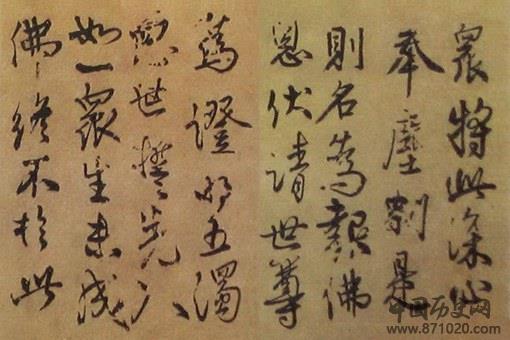 眾將此深心
奉塵剎是
則名為報佛
恩伏請世尊
為證明五濁
惡世誓先入
如一眾生未成
佛終不於此
中国历史网
www.871020.com